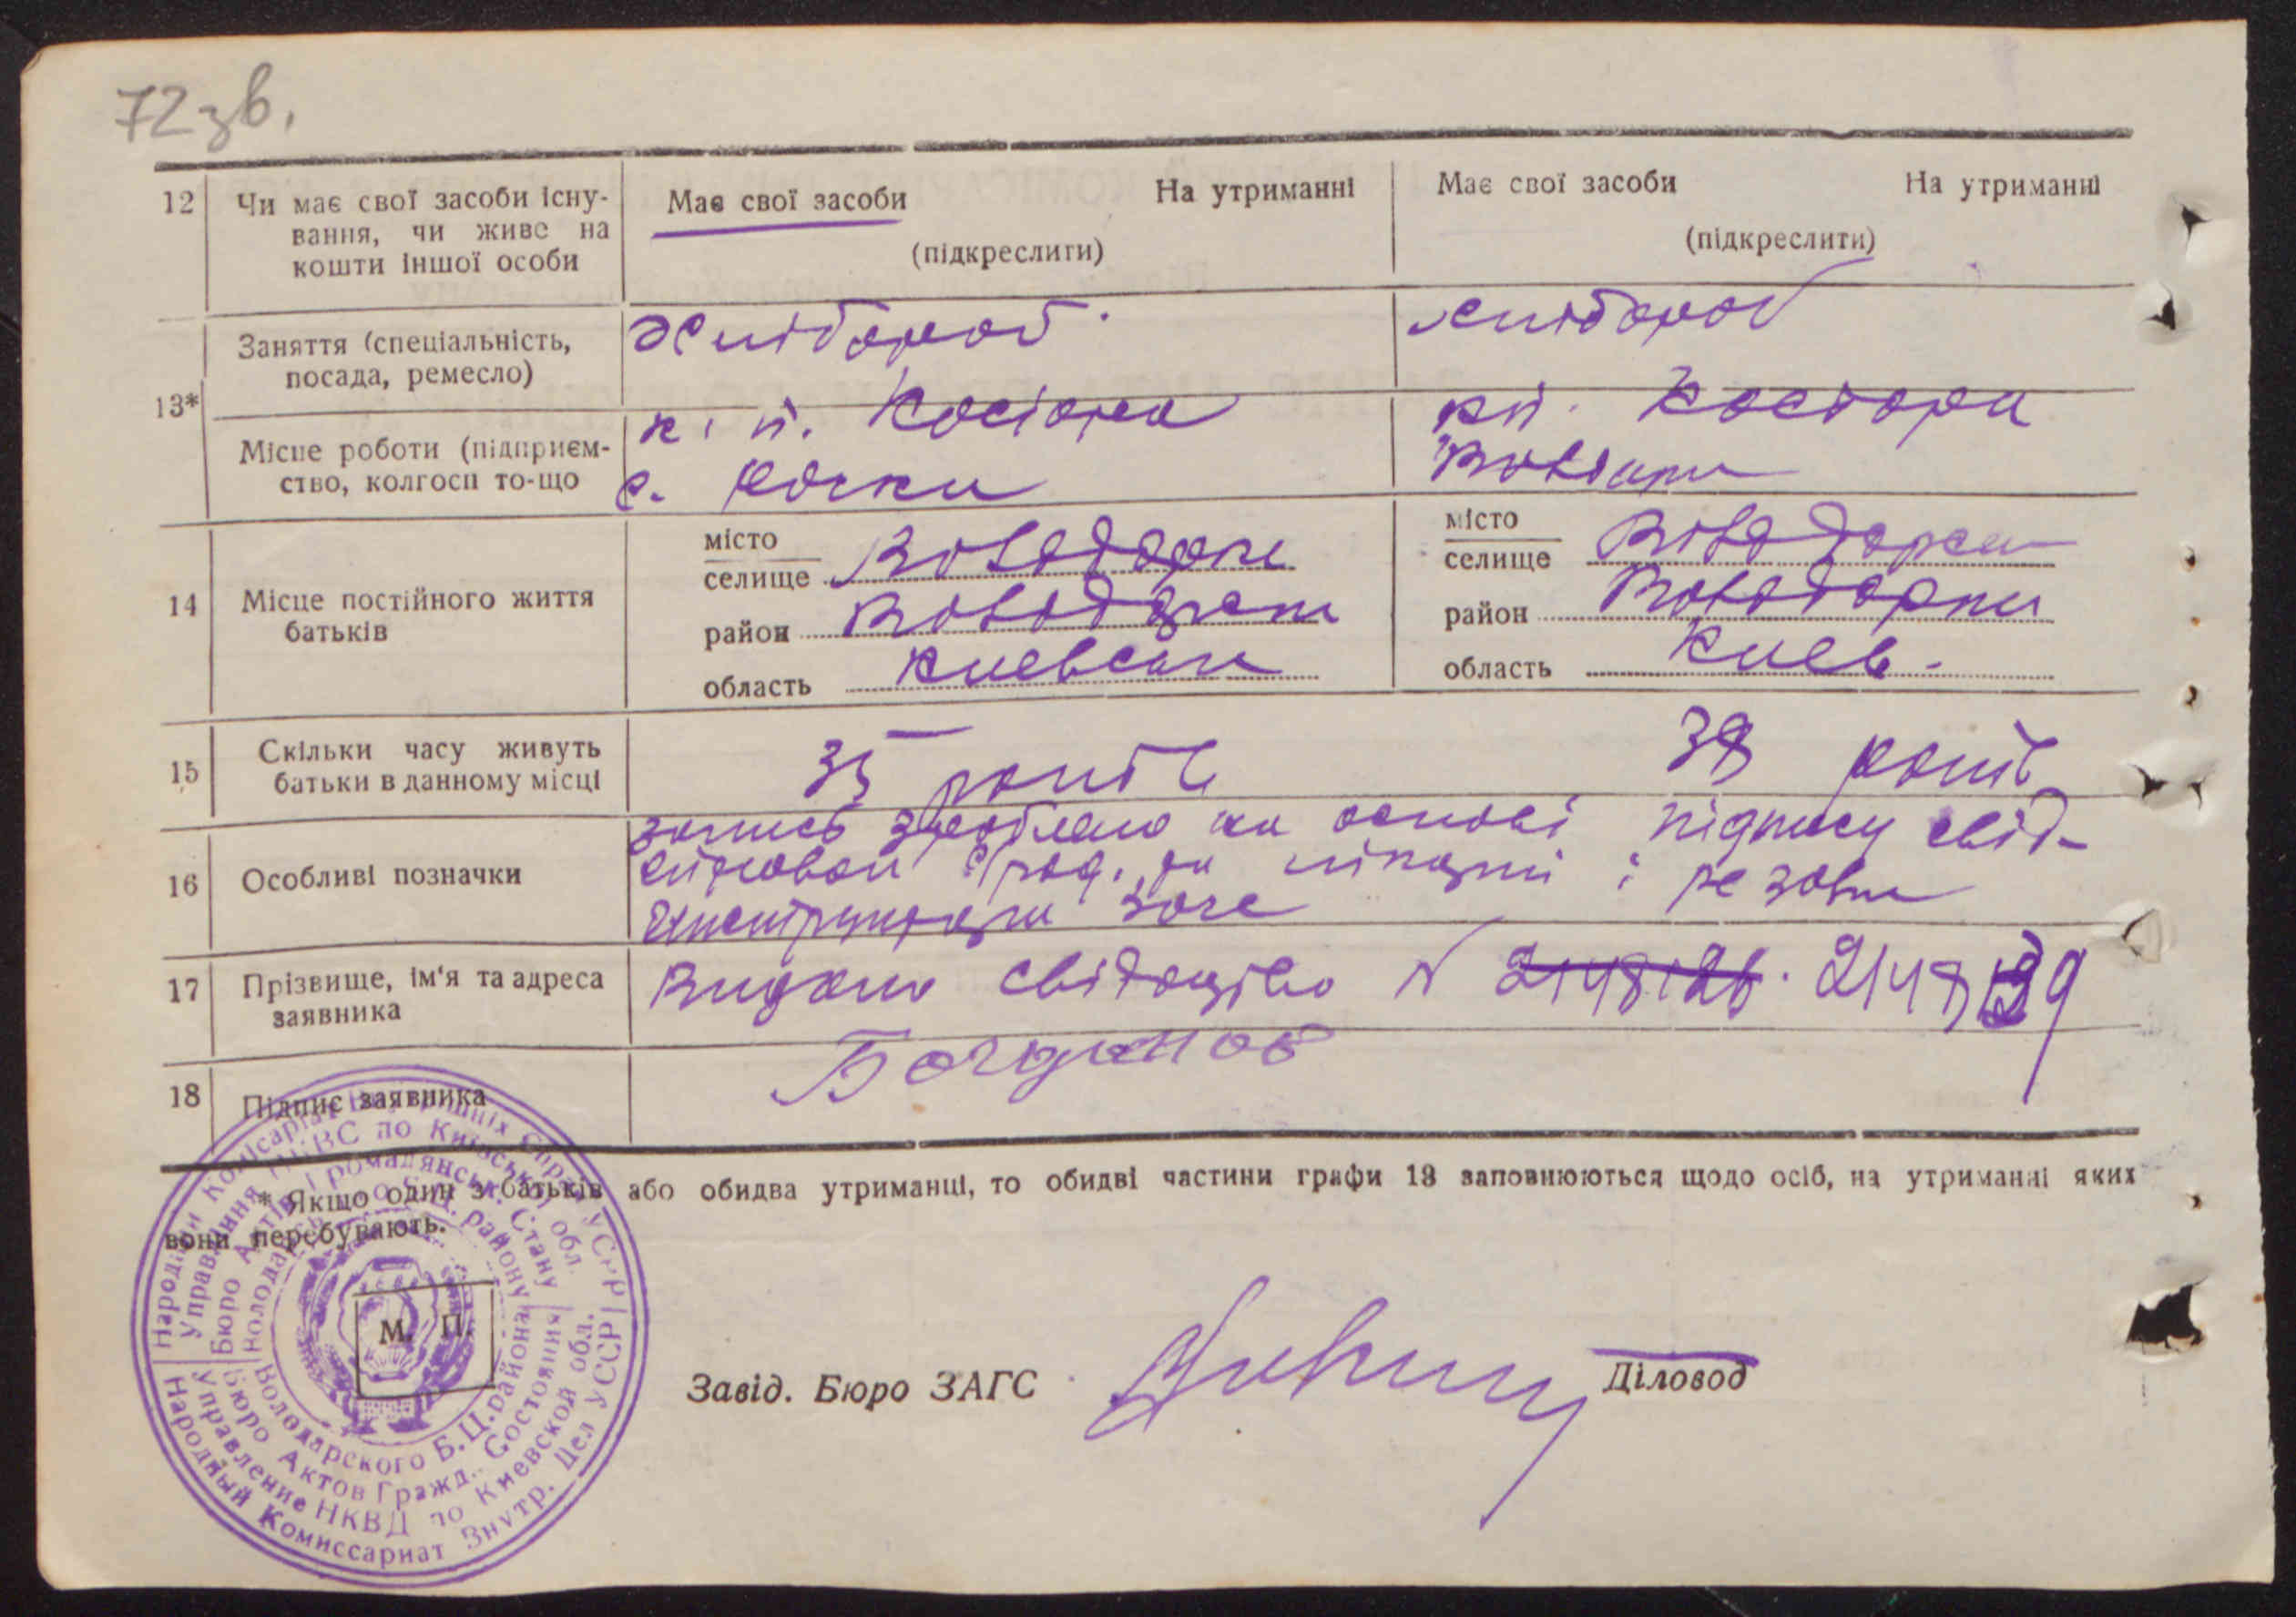 72 зв.
12 Чи має свої засоби існу-
вання, чи живе на
кошти іншої особи
Має свої засоби На утриманні
(підкреслити)
Має свої засоби На утриманні
(підкреслити)
13*
Заняття (спеціальність,
посада, ремесло)
Хлібороб
хлібороб
Місце роботи (підприєм-
ство, колгосп то-що
к. п. Косіора
с.
кп. Косіора
14 Місце постійного життя
батьків
місто
селище Володарка
район Володарськ
область Киевська
місто
селище Володарка
район Володарка
область Киев-
15 Скільки часу живуть
батьки в данному місці
35 років
38 років
16 Особливі позначки
запись зроблено на основі підпису свід-
с/рад. і
17 Прізвище, ім'я та адреса
заявника
Видано свідоцтво N 2148126.
18 Підпис заявника
Богданов
* Якщо один з батьків або обидва утриманці, то обидві частини графи 13 заповнюються щодо осіб, на утриманні яких
вони перебувають.
М. П.
Завід. Бюро ЗАГС
Діловод
Народній Комісаріат Внутрішніх Справ УСРР
Управління НКВС по Київській обл.
Бюро Актів Громадянськ. Стану
Народный Комиссариат Внутр. Дел УССР
Управление НКВД по Киевской обл.
Бюро Актов Гражд. Состояния
Володарского Б.Ц. района